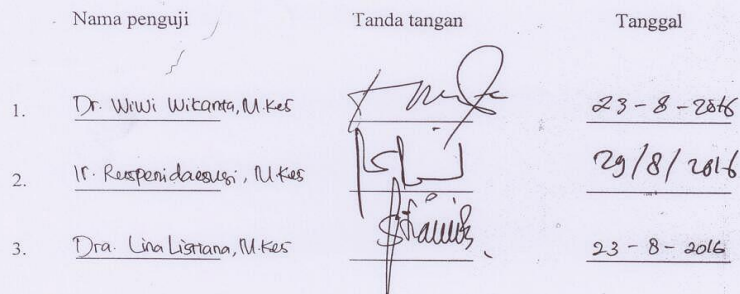 Nama penguji Tanda tangan Tanggal
1. Dr. Wiwi Wikanta, M.Kes 23 - 8 - 2016
2. Ir. M.Kes 29/8/2016
3. Dra. Lina Listiana, M.Kes 23 - 8 - 2016